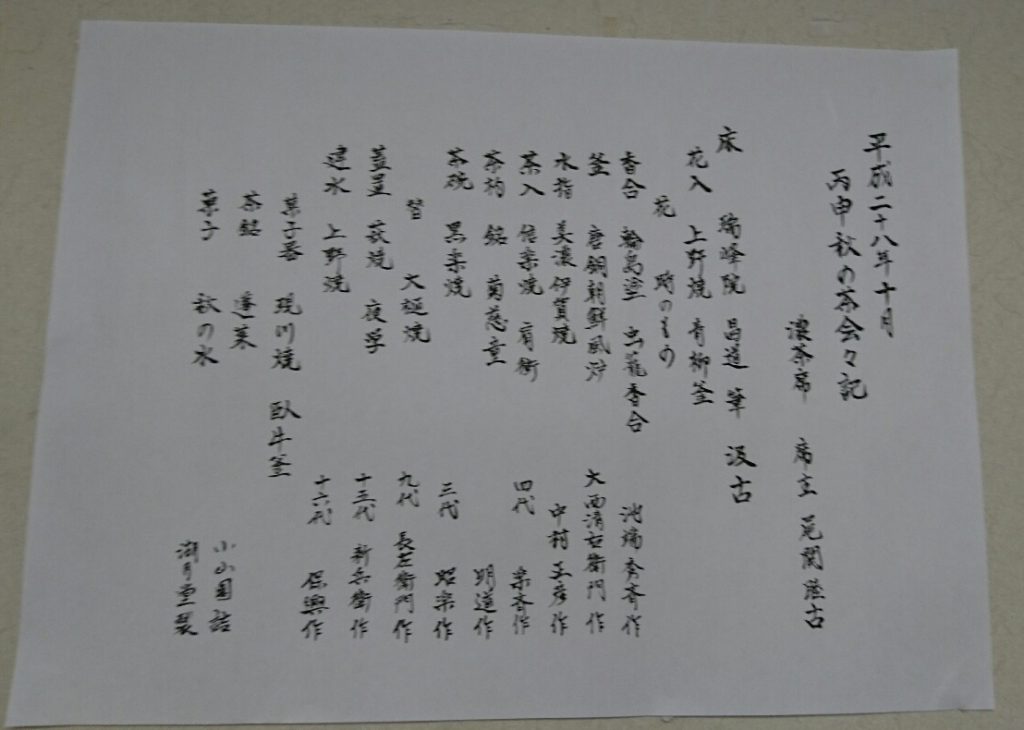 平成二十八年十月
丙申秋の茶会々記
濃茶席 席主
床 瑞峰院 昌道 筆 汲古
花入 上野焼 青柳釜
花 時のもの
香合 輪島塗 虫籠香合 池端 斉作
釜 唐銅朝鮮風炉 大西清右衛門 作
水指 美濃伊賀焼 中村 作
茶入 信楽焼 肩衝 四代 楽斉作
茶杓 銘 菊慈童 明道作
茶碗 黒楽焼 三代 昭楽作
替 大樋焼 九代 長左衛門作
蓋置 萩焼 夜学 十三代 新兵衛作
建水 上野焼 十六代 作
菓子器 現川焼 臥牛窯
茶銘 蓬莱 小山園詰
菓子 秋の水 湖月堂製